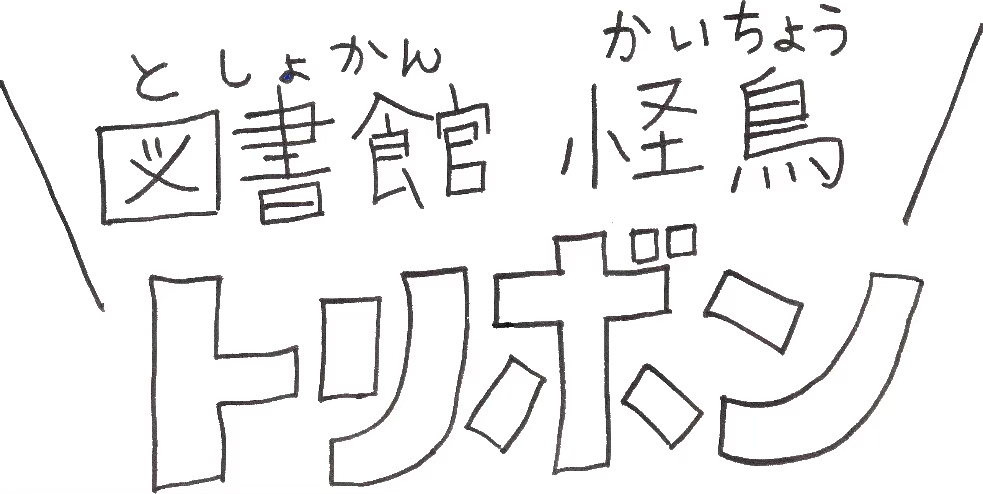 としょかん かいちょう
図書館 怪鳥
トリボン